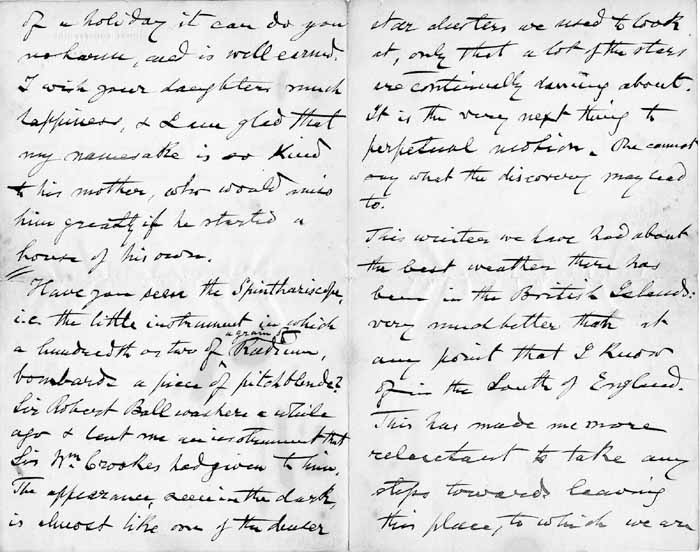 of a holiday it can do you
no harm, and is well earned.
I wish your daughters much
happiness, & I am glad that
my namesake is so kind
to his mother, who would miss
him greatly if he started a
house of his own.
Have you seen the Spinthariscope,
i.e. the little instrument in which
a hundredth or two of a grain of Radium,
bombards a piece of pitchblende?
Sir Robert Ball was here a while
ago & lent me an instrument that
Sir Wm. Crookes had given to him.
The appearance, seen in the dark,
is almost like one of the denser
star clusters we used to look
at, only that a lot of the stars
are continually dancing about.
It is the very next thing to
perpetual motion. One cannot
say what the discovery may lead
to.
This winter we have had about
the best weather there has
been in the British Islands:
very much better than at
any point that I know
of in the South of England.
This has made me more
reluctant to take any
steps towards leaving
this place, to which we are